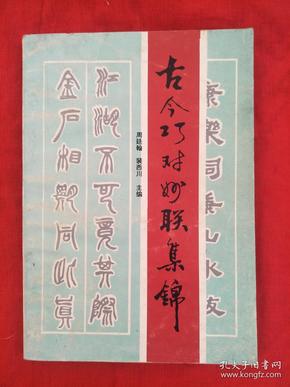 古今巧对妙联集锦
周廷翰 裴西川 主编
江湖不可竟其际
金石相期同此真
孔夫子旧书网